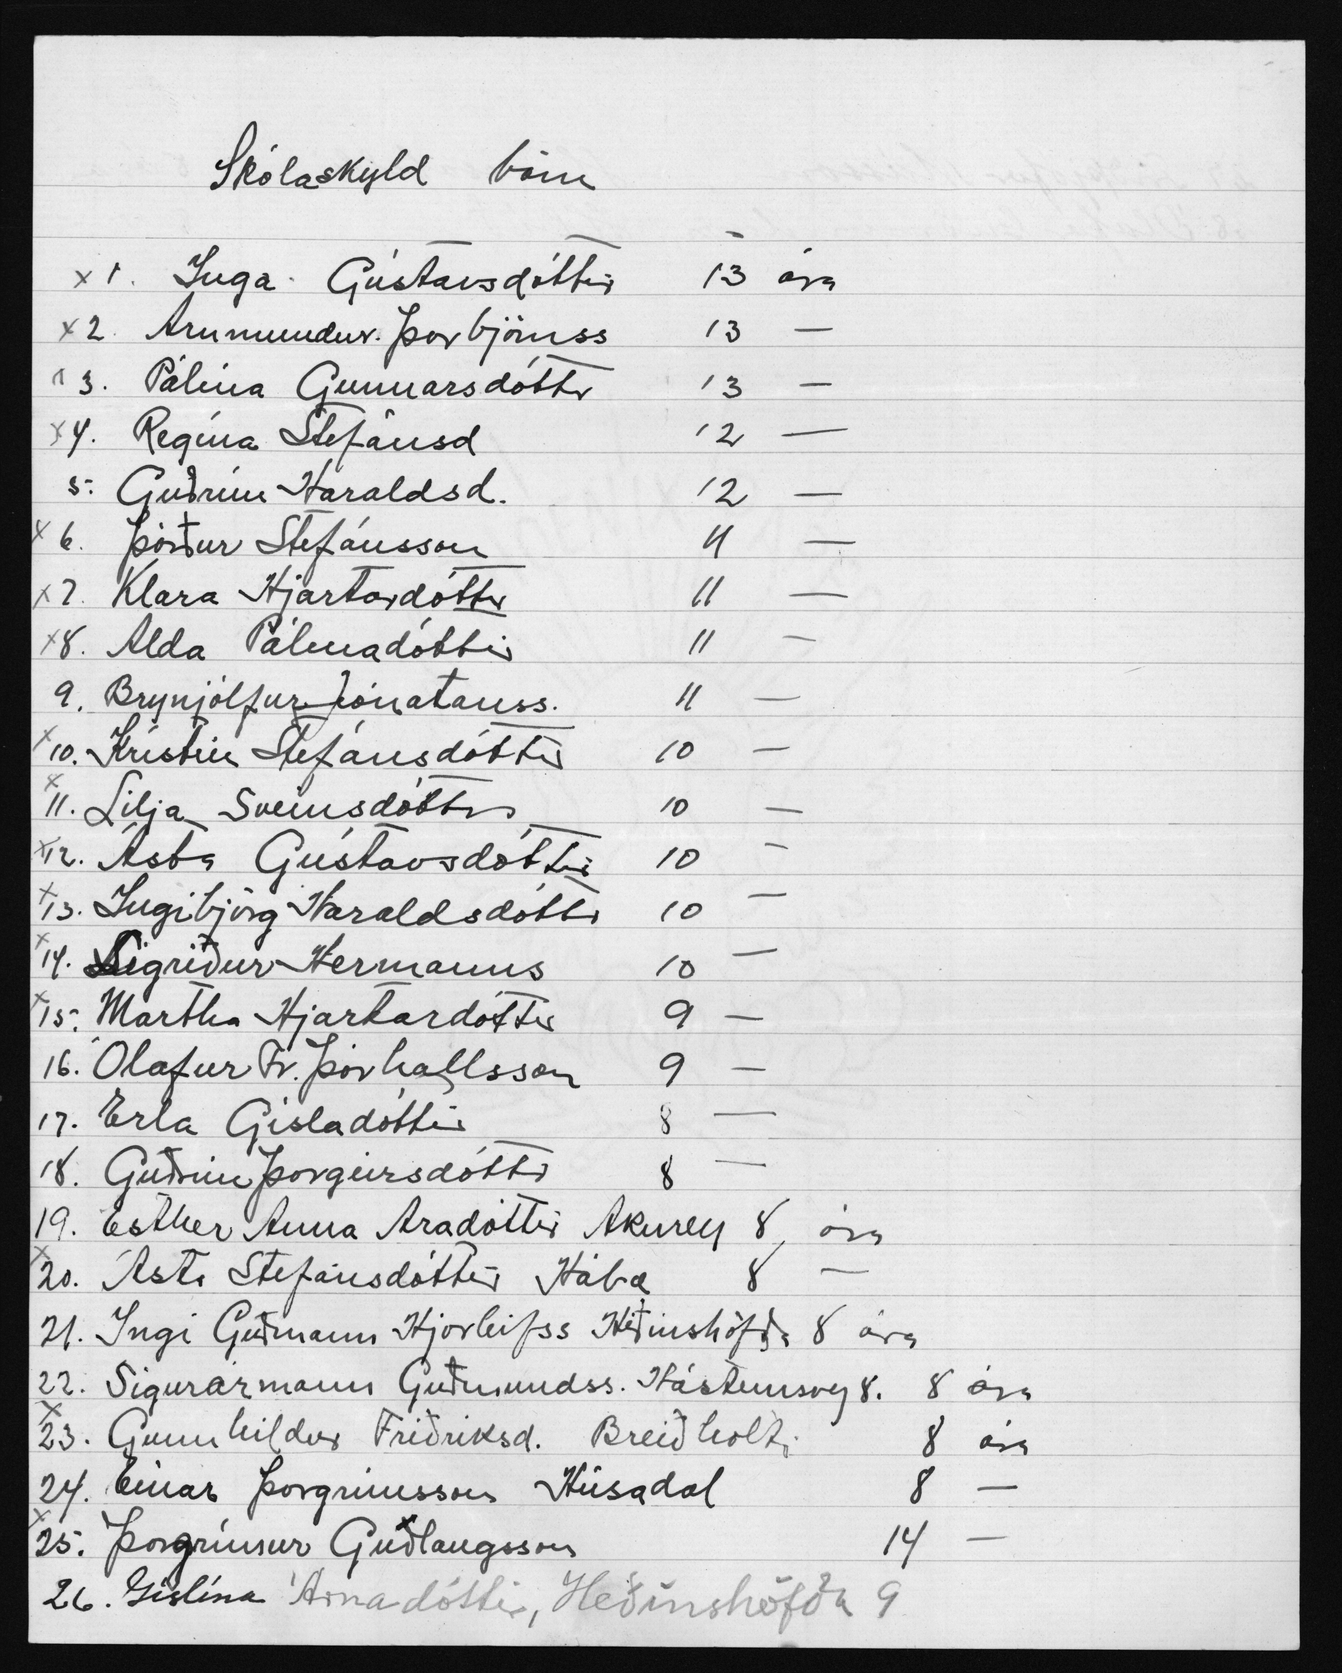 Skólaskyld börn
x 1. Inga Gústavsdóttir 13 ára
x 2. Arnmundur Þorbjörnss 13 —
3. Pálína Gunnarsdóttir 13 —
x 4. Regína Stefánsd 12 —
5. Guðrún Haraldsd. 12 —
x 6. Þórður Stefánsson 11 —
x 7. Klara Hjartardóttir 11 —
x 8. Alda Pálmadóttir 11 —
9. Brynjólfur Jónatanss. 11 —
x 10. Kristín Stefánsdóttir 10 —
x 11. Lilja Sveinsdóttir 10 —
x 12. Ásta Gústavsdóttir 10 —
x 13. Ingibjörg Haraldsdóttir 10 —
x 14. Sigríður Hermanns 10 —
x 15. Martha Hjartardóttir 9 —
16. Ólafur Fr. Þórhallsson 9 —
17. Erla Gísladóttir 8 —
18. Guðrún Þorgeirsdóttir 8 —
19. Esther Anna Aradóttir Akurey 8 ára
x 20. Ásta Stefánsdóttir Hábæ 8 —
21. Ingi Guðmann Hjörleifss Héðinshöfða 8 ára
22. Sigurármann Guðmundss. Hásteinsveg 8. 8 ára
x 23. Gunnhildur Friðriksd. Breiðholti 8 ára
24. Einar Þorgrímsson Húsadal 8 —
x 25. Þorgrímur Guðlaugsson 14 —
26. Gíslína Árnadóttir, Héðinshöfða 9